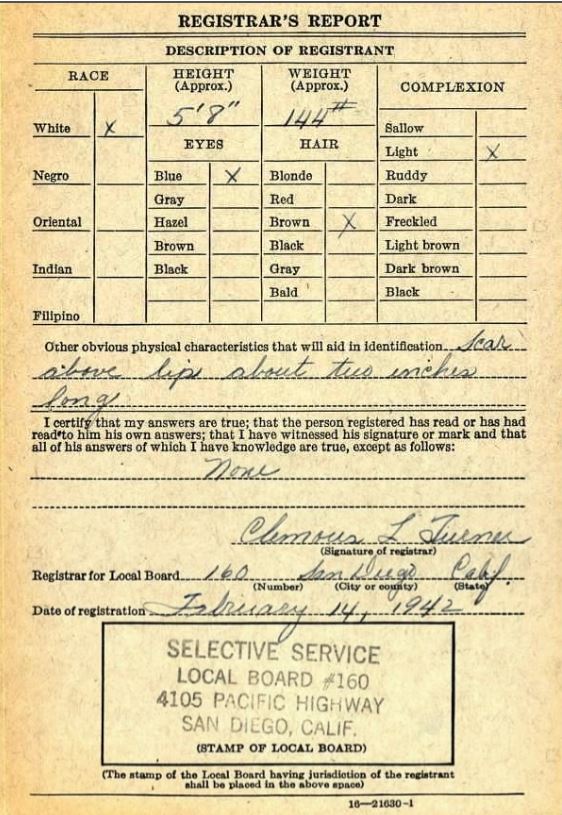 REGISTRAR'S REPORT
DESCRIPTION OF REGISTRANT
RACE
HEIGHT
(Approx.)
WEIGHT
(Approx.)
COMPLEXION
5'8"
144#
White X
Sallow
EYES
HAIR
Light X
Negro
Blue X
Blonde
Ruddy
Gray
Red
Dark
Oriental
Hazel
Brown X
Freckled
Brown
Black
Light brown
Indian
Black
Gray
Dark brown
Bald
Black
Filipino
Other obvious physical characteristics that will aid in identification Scar
above lips about two inches
long
I certify that my answers are true; that the person registered has read or has had
read to him his own answers; that I have witnessed his signature or mark and that
all of his answers of which I have knowledge are true, except as follows:
None
L Turner
(Signature of registrar)
Registrar for Local Board 160 San Diego Calif.
(Number) (City or county) (State)
Date of registration February 14, 1942
SELECTIVE SERVICE
LOCAL BOARD #160
4105 PACIFIC HIGHWAY
SAN DIEGO, CALIF.
(STAMP OF LOCAL BOARD)
(The stamp of the Local Board having jurisdiction of the registrant
shall be placed in the above space)
16—21630-1